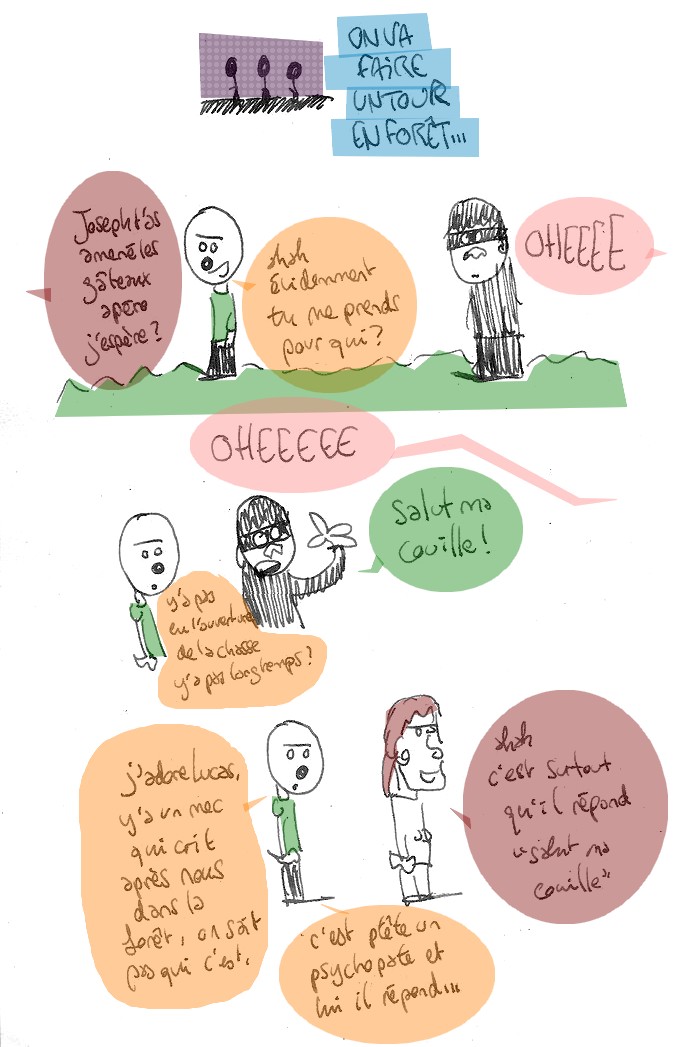 ON VA
FAIRE
UN TOUR
EN FORÊT...
Joseph t'as
amené les
gâteaux
apéro
j'espère ?
ahah
évidemment
tu me prends
pour qui ?
OHEEEE
OHEEEEE
Salut ma
couille !
y'a pas
eu l'ouverture
de la chasse
y'a pas longtemps ?
j'adore Lucas,
y'a un mec
qui crit
après nous
dans la
forêt, on sait
pas qui c'est,
ahah
c'est surtout
qu'il répond
"salut ma
couille"
c'est ptête un
psychopate et
lui il répond...